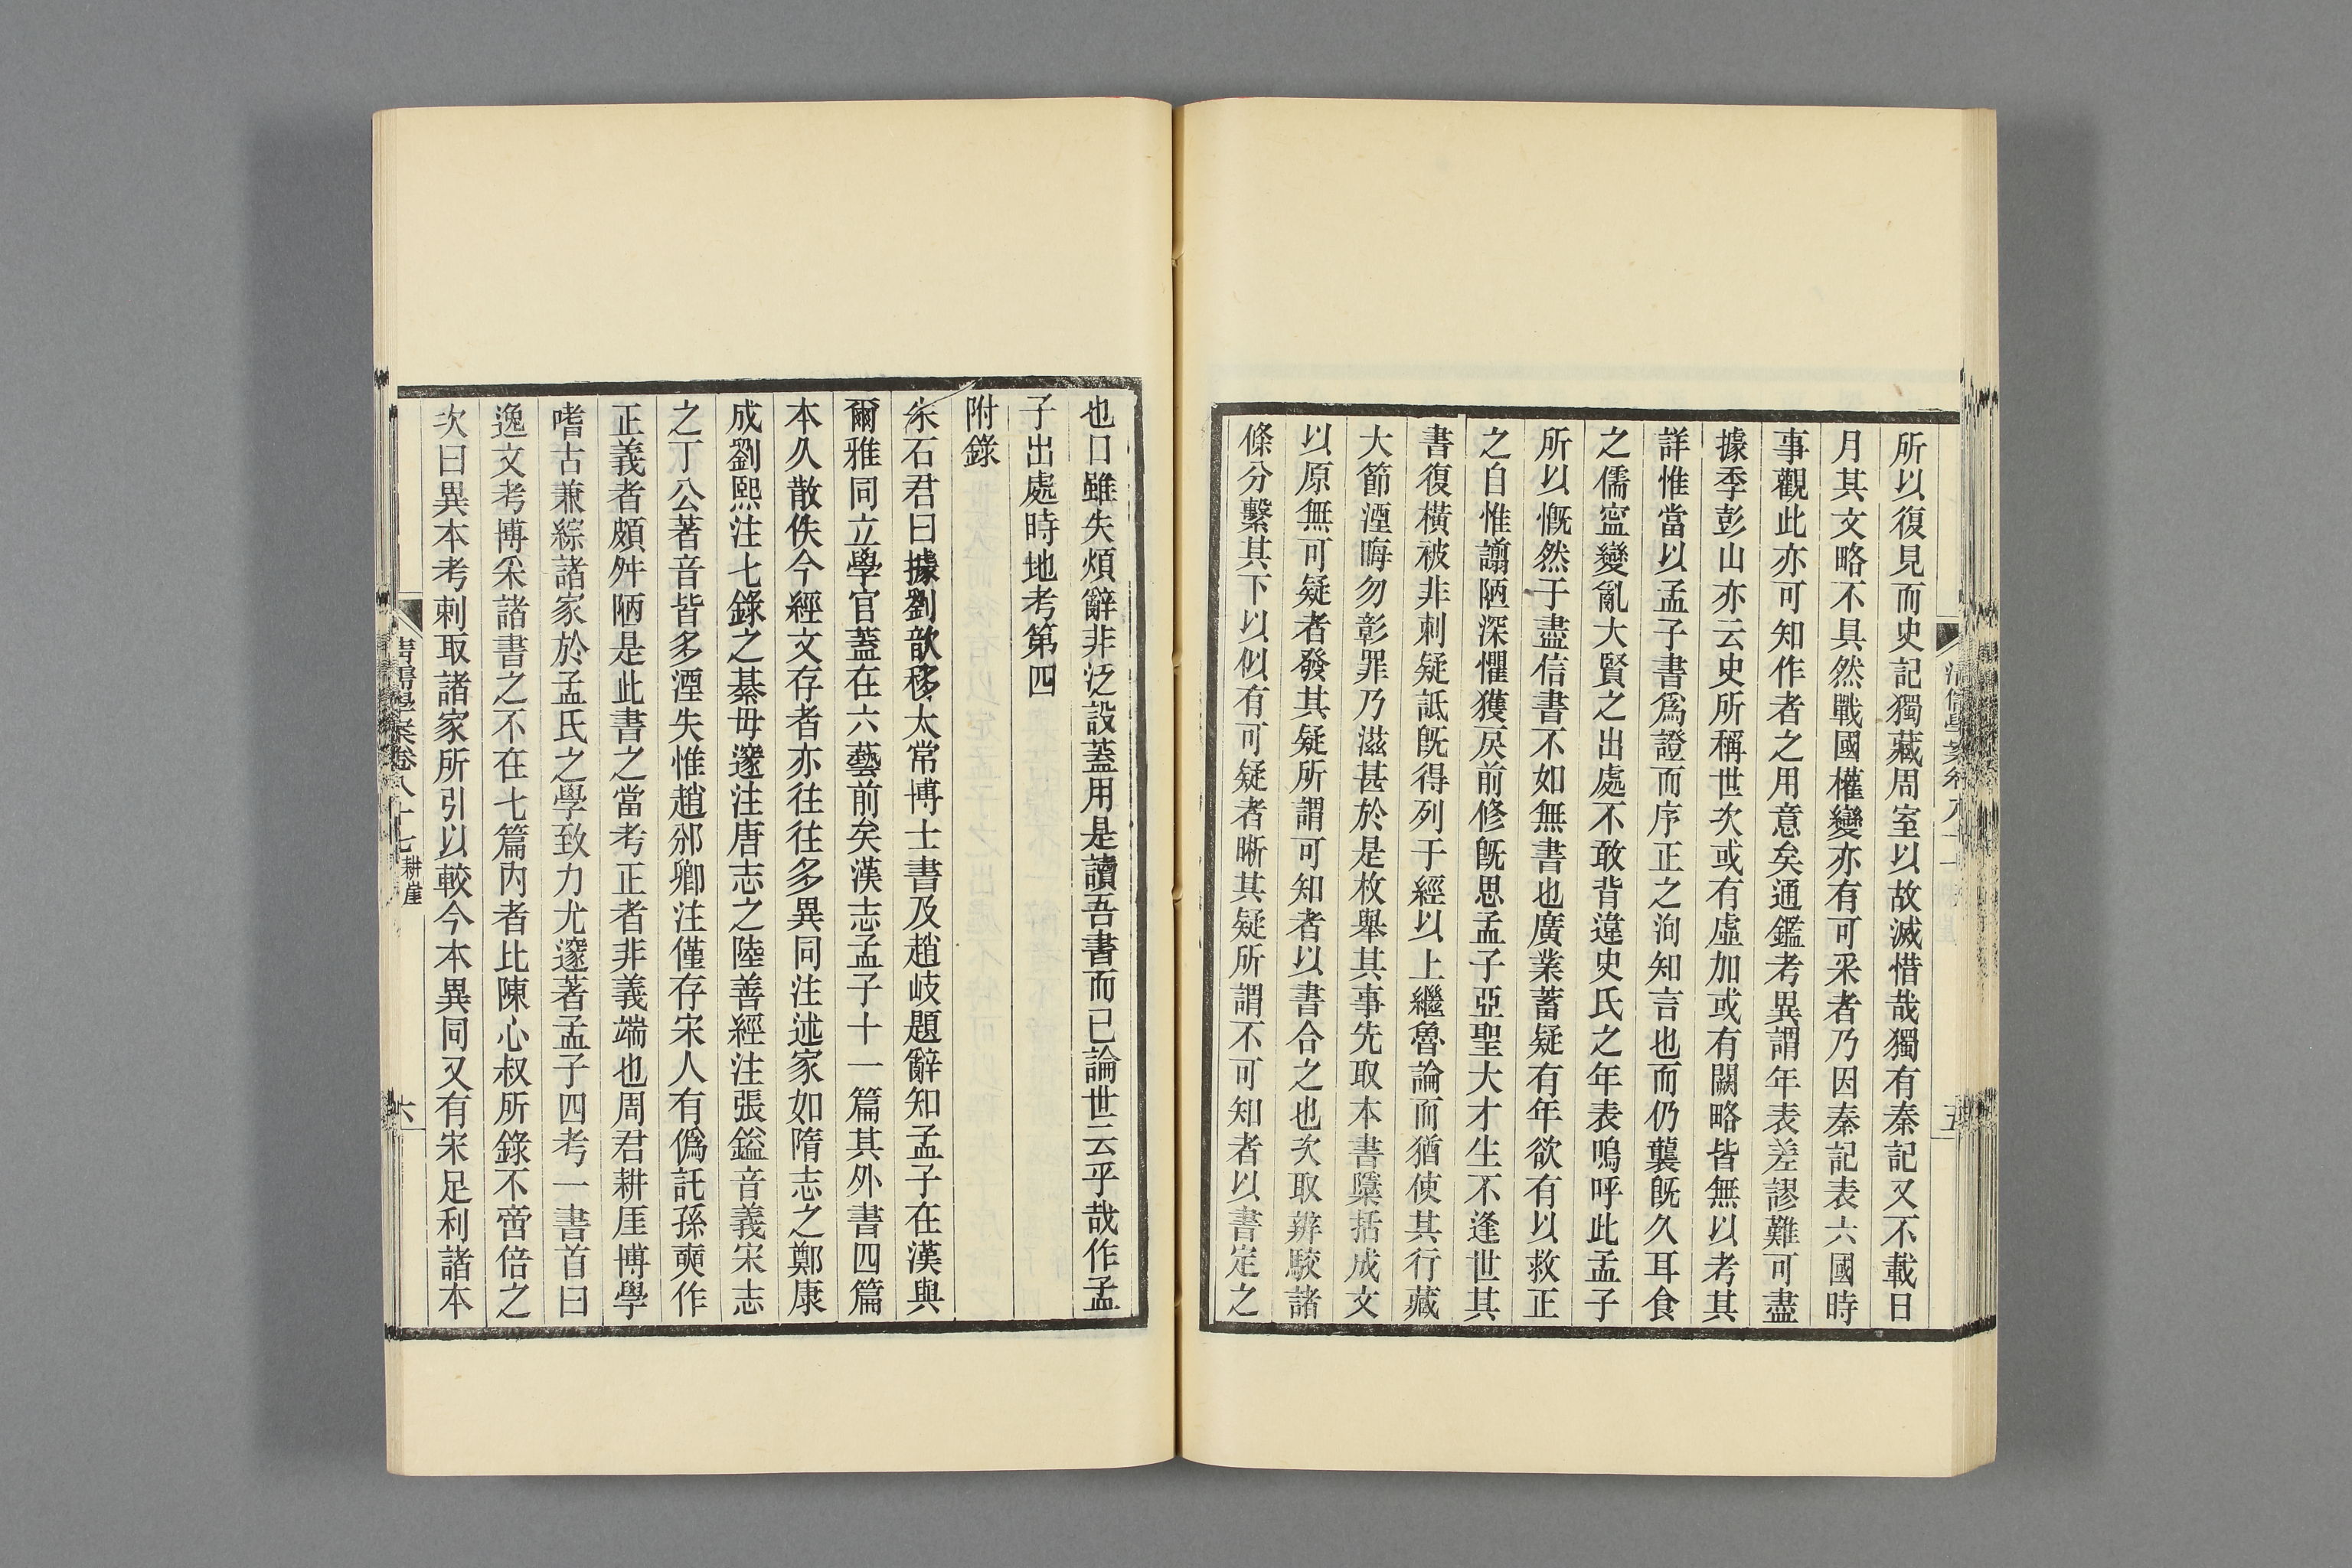 所以復見而史記獨藏周室以故滅惜哉獨有秦記又不載日
月其文略不具然戰國權變亦有可采者乃因秦記表六國時
事觀此亦可知作者之用意矣通鑑考異謂年表差謬難可盡
據季彭山亦云史所稱世次或有虛加或有闕略皆無以考其
詳惟當以孟子書爲證而序正之洵知言也而仍襲旣久耳食
之儒寍變亂大賢之出處不敢背違史氏之年表嗚呼此孟子
所以慨然于盡信書不如無書也廣業蓄疑有年欲有以救正
之自惟譾陋深懼獲戾前修旣思孟子亞聖大才生不逢世其
書復橫被非刺疑詆旣得列于經以上繼魯論而猶使其行藏
大節湮晦勿彰罪乃滋甚於是枚舉其事先取本書檃括成文
以原無可疑者發其疑所謂可知者以書合之也次取辨駮諸
條分繫其下以似有可疑者晰其疑所謂不可知者以書定之
五
也口雖失煩辭非泛設蓋用是讀吾書而已論世云乎哉作孟
子出處時地考第四
附錄
朱石君曰據劉歆移太常博士書及趙岐題辭知孟子在漢與
爾雅同立學官蓋在六藝前矣漢志孟子十一篇其外書四篇
本久散佚今經文存者亦往往多異同注述家如隋志之鄭康
成劉熙注七錄之綦毋邃注唐志之陸善經注張鎰音義宋志
之丁公著音皆多湮失惟趙邠卿注僅存宋人有僞託孫奭作
正義者頗舛陋是此書之當考正者非義端也周君耕厓博學
嗜古兼綜諸家於孟氏之學致力尤邃著孟子四考一書首曰
逸文考博采諸書之不在七篇內者比陳心叔所錄不啻倍之
次曰異本考刺取諸家所引以較今本異同又有宋足利諸本
清儒學案卷八十七 耕崖
六